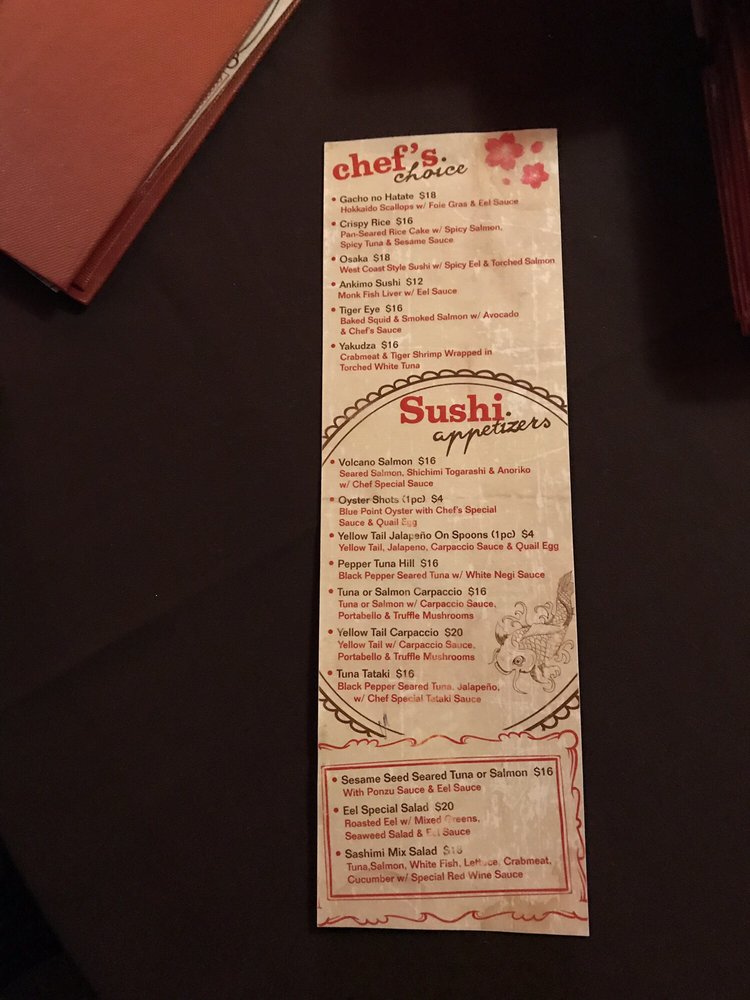 chef's
choice
• Gacho no Hatate $18
Hokkaido Scallops w/ Foie Gras & Eel Sauce
• Crispy Rice $16
Pan-Seared Rice Cake w/ Spicy Salmon,
Spicy Tuna & Sesame Sauce
• Osaka $18
West Coast Style Sushi w/ Spicy Eel & Torched Salmon
• Ankimo Sushi $12
Monk Fish Liver w/ Eel Sauce
• Tiger Eye $16
Baked Squid & Smoked Salmon w/ Avocado
& Chef's Sauce
• Yakudza $16
Crabmeat & Tiger Shrimp Wrapped in
Torched White Tuna
Sushi
appetizers
• Volcano Salmon $16
Seared Salmon, Shichimi Togarashi & Anoriko
w/ Chef Special Sauce
• Oyster Shots (1pc) $4
Blue Point Oyster with Chef's Special
Sauce & Quail Egg
• Yellow Tail Jalapeño On Spoons (1pc) $4
Yellow Tail, Jalapeno, Carpaccio Sauce & Quail Egg
• Pepper Tuna Hill $16
Black Pepper Seared Tuna w/ White Negi Sauce
• Tuna or Salmon Carpaccio $16
Tuna or Salmon w/ Carpaccio Sauce,
Portabello & Truffle Mushrooms
• Yellow Tail Carpaccio $20
Yellow Tail w/ Carpaccio Sauce,
Portabello & Truffle Mushrooms
• Tuna Tataki $16
Black Pepper Seared Tuna, Jalapeño,
w/ Chef Special Tataki Sauce
• Sesame Seed Seared Tuna or Salmon $16
With Ponzu Sauce & Eel Sauce
• Eel Special Salad $20
Roasted Eel w/ Mixed Greens,
Seaweed Salad & Eel Sauce
• Sashimi Mix Salad
Tuna,Salmon, White Fish, Lettuce, Crabmeat,
Cucumber w/ Special Red Wine Sauce